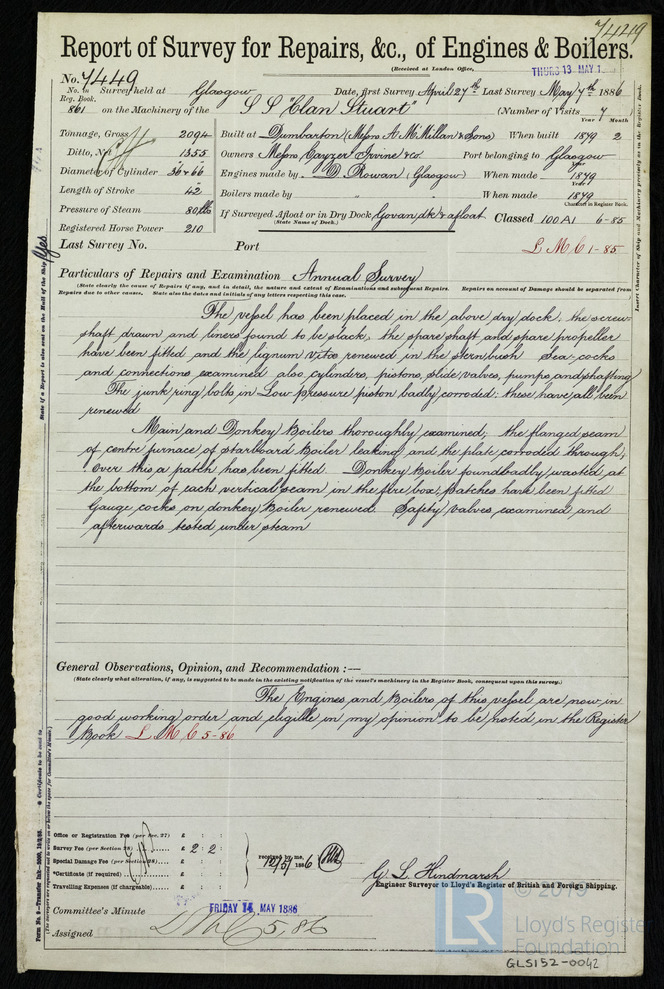 7449
Report of Survey for Repairs, &c., of Engines & Boilers.
(Received at London Office,
THURS 13 MAY 1
No. 7449
No. in Survey held at Glasgow Date, first Survey April 27th Last Survey May 7th 1886
Reg. Book.
861 on the Machinery of the S S "Clan Stuart" (Number of Visits 7
Year Month
Tonnage, Gross 2094 Built at Dumbarton (Messrs A. McMillan & Sons) When built 1879 2
Ditto, Net 1355 Owners Messrs Cayzer Irvine & Co Port belonging to Glasgow
Diameter of Cylinder 36 & 66 Engines made by D. Rowan (Glasgow) When made 1879
Length of Stroke 42 Boilers made by " When made 1879
Pressure of Steam 80 lbs If Surveyed Afloat or in Dry Dock, Govan dk & afloat Classed 100 A1 6-85
(State Name of Dock.)
Character in Register Book.
Registered Horse Power 210
Last Survey No. Port L M C 1-85
Particulars of Repairs and Examination Annual Survey
(State clearly the cause of Repairs if any, and in detail, the nature and extent of Examinations and subsequent Repairs. Repairs on account of Damage should be separated from
Repairs due to other causes. State also the dates and initials of any letters respecting this case.
The vessel has been placed in the above dry dock, the screw
shaft drawn and liners found to be slack, the spare shaft and spare propeller
have been fitted and the lignum vitæ renewed in the stern bush Sea-cocks
and connections examined also, cylinders, pistons, slide, valves, pumps and shafting
The junk ring bolts in Low pressure piston badly corroded; these have all been
renewed
Main and Donkey Boilers thoroughly examined; the flanged seam
of centre furnace of starboard Boiler leaking and the plate corroded through,
over this a patch has been fitted. Donkey Boiler found badly wasted at
the bottom of each vertical seam in the fire box, patches have been fitted
Gauge cocks on donkey Boiler renewed. Safety valves examined and
afterwards tested under steam
General Observations, Opinion, and Recommendation :—
(State clearly what alteration, if any, is suggested to be made in the existing notification of the vessel's machinery in the Register Book, consequent upon this survey.)
The Engines and Boilers of this vessel are now in
good working order and eligible in my opinion to be noted in the Register
Book L M C 5-86
Office or Registration Fee (per Sec. 27) £ : :
Survey Fee (per Section 28) £ 2 : 2 :
Special Damage Fee (per Section 28) £ : :
*Certificate (if required) £ : :
Travelling Expenses (if chargeable) £ : :
received by me,
12/5/1886
G. L. Hindmarsh
Engineer Surveyor to Lloyd's Register of British and Foreign Shipping.
Committee's Minute FRIDAY 14 MAY 1886
Assigned L M C 5,86
State if a Report is also sent on the Hull of the Ship Yes
Insert Character of Ship and Machinery precisely as in the Register Book.
* Certificate to be sent to
Form No. 9
LR
© 2019
Lloyd's Register
Foundation
GLS152-0042